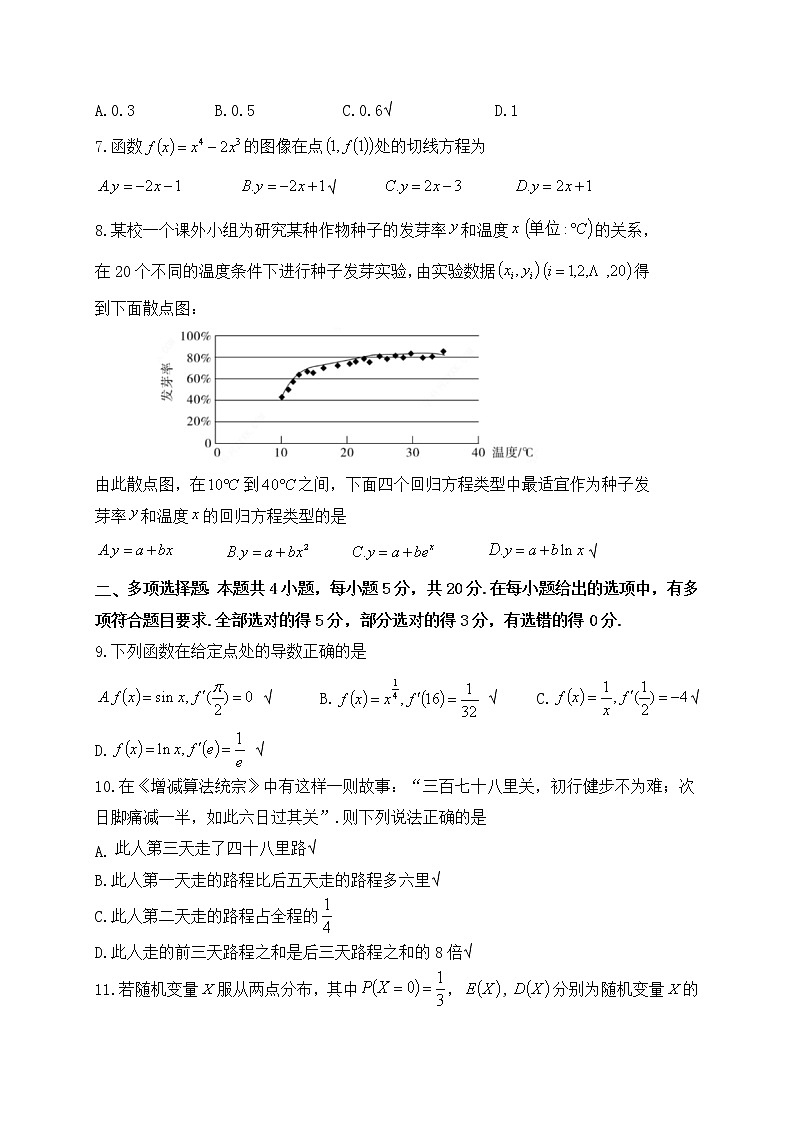 A.0.3 B.0.5 C.0.6√ D.1
7.函数 f(x)=x⁴-2x³ 的图像在点(1,f(1))处的切线方程为
A.y=-2x-1 B.y=-2x+1√ C.y=2x-3 D.y=2x+1
8.某校一个课外小组为研究某种作物种子的发芽率 y 和温度 x (单位:°C)的关系,
在 20 个不同的温度条件下进行种子发芽实验,由实验数据(xᵢ,yᵢ)(i=1,2,Λ ,20)得
到下面散点图:
100%
80%
60%
40%
20%
0
发芽率
0 10 20 30 40 温度/℃
由此散点图,在10°C到40°C之间,下面四个回归方程类型中最适宜作为种子发
芽率 y 和温度 x 的回归方程类型的是
A.y=a+bx B.y=a+bx² C.y=a+beˣ D.y=a+b ln x√
二、多项选择题.本题共 4 小题,每小题 5 分,共 20 分.在每小题给出的选项中,有多
项符合题目要求.全部选对的得 5 分,部分选对的得 3 分,有选错的得 0 分.
9.下列函数在给定点处的导数正确的是
A.f(x)=sin x,f′(π/2)=0 √ B. f(x)=x^(1/4),f′(16)=1/32 √ C. f(x)=1/x,f′(1/2)=-4√
D. f(x)=ln x,f′(e)=1/e √
10.在《增减算法统宗》中有这样一则故事:“三百七十八里关,初行健步不为难;次
日脚痛减一半,如此六日过其关”.则下列说法正确的是
A. 此人第三天走了四十八里路√
B.此人第一天走的路程比后五天走的路程多六里√
C.此人第二天走的路程占全程的1/4
D.此人走的前三天路程之和是后三天路程之和的 8 倍√
11.若随机变量 X 服从两点分布,其中 P(X=0)=1/3, E(X), D(X)分别为随机变量 X 的